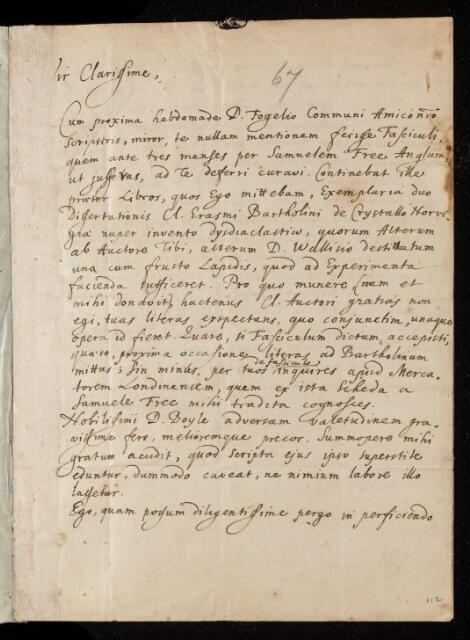 Vir Clarissime,
67
Cum proxima hebdomade D. Fogelio Communi Amico nr̄o
scripseris, miror, te nullam mentionem fecisse Fasciculi,
quem ante tres menses per Samuelem Free Anglum,
ut jusseras, ad Te deferri curavi. Continebat ille
præter Libros, quos Ego mittebam, Exemplaria duo
Dissertationis Cl. Erasmi Bartholini de Crystallo Norve-
giæ nuper invento dysdiaclastico, quorum Alterum
ab Auctore Tibi, alterum D. Wallisio destinatum
una cum frusto Lapidis, quod ad Experimenta
facienda sufficeret. Pro quo munere (nam et
mihi donavit) hactenus Cl. Auctori gratias non
egi, tuas literas exspectans, quo conjunctim, unaque
opera id fieret. Quare, si Fasciculum dictum accepisti,
quæso, proxima occasione literas ad Bartholinum
mittas; sin minus, per tuos de fasciculo inquires apud Merca-
torem Londinensem, quem ex ista scheda a
Samuele Free mihi tradita cognosces.
Nobilissimi D. Boyle adversam valetudinem gra-
vissime fero, melioremque precor. Summopere mihi
gratum accidit, quod scripta ejus ipso superstite
eduntur, dummodo caveat, ne nimium labore illo
lassetur.
Ego, quam possum diligentissime pergo in perficiendo
112